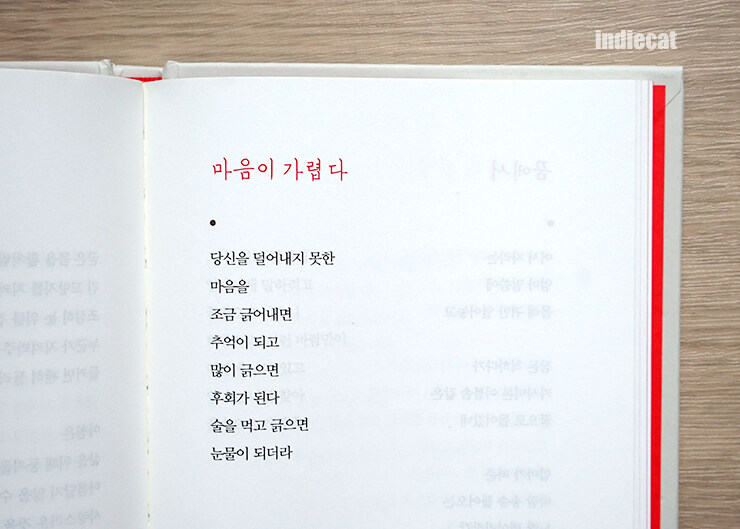 indiecat
마음이 가렵다
당신을 덜어내지 못한
마음을
조금 긁어내면
추억이 되고
많이 긁으면
후회가 된다
술을 먹고 긁으면
눈물이 되더라